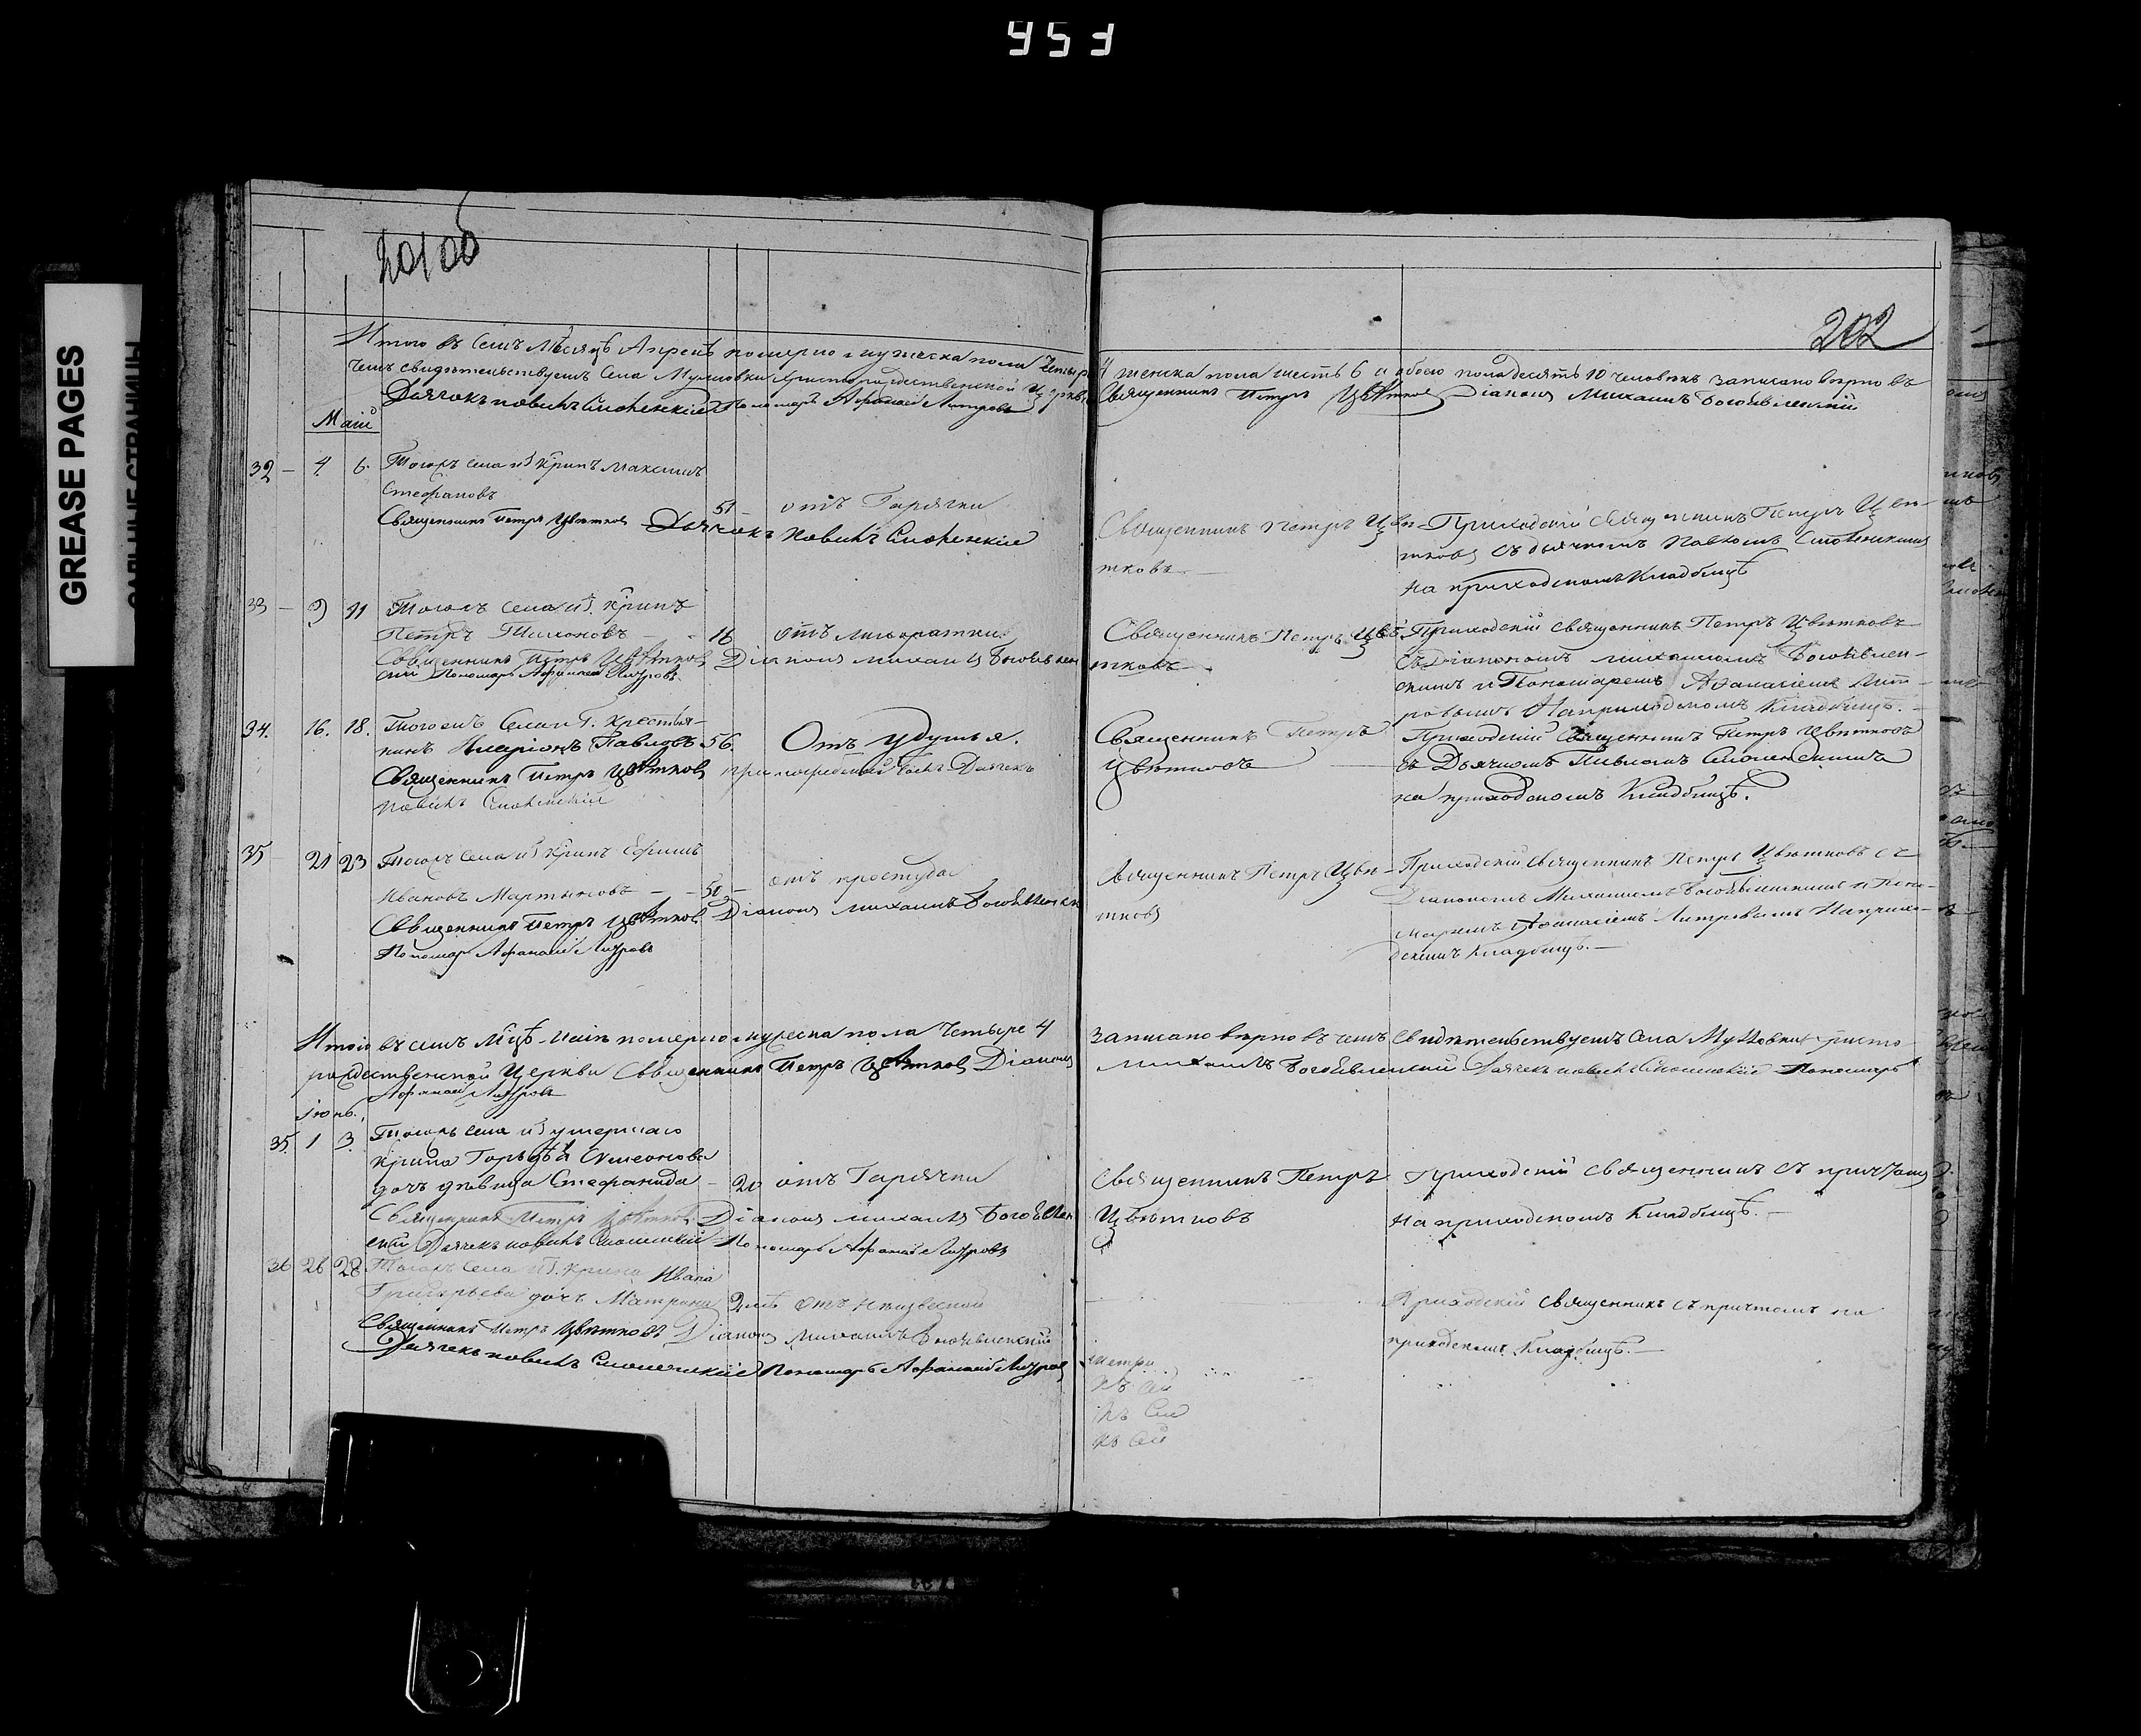 453
GREASE PAGES
САЛЬНЫЕ СТРАНИЦЫ
201об
202
Итого въ семъ Месяцѣ Апрелѣ померло мужеска пола четыре 4 женска пола шесть 6 а обоего пола десять 10 человѣкъ записано вѣрно въ
чемъ свидѣтельствуемъ Села Христорождественской Церкви Священникъ Петръ Цвѣтковъ Діаконъ Михаилъ Богоявленскій
Дьячокъ Павелъ Смоленскій Пономарь Афанасій
Маій
32 4 6. Тогожъ села из крнъ Максимъ
Стефановъ
51 отъ Горячки
Священникъ Петръ Цвѣтковъ Дьячокъ Павелъ Смоленскій
Священникъ Петръ Цвѣ-
тковъ.
Приходскій Священникъ Петръ Цвѣ-
тковъ съ дьячкомъ Павломъ Смоленскимъ
на приходскомъ Кладбищѣ
33 9 11 Тогожъ села из. крнъ
Петръ Тихоновъ 16 отъ лихорадки.
Священникъ Петръ Цвѣтковъ Діаконъ Михаилъ Богоявлен
скій Пономарь Афанасій
Священникъ Петръ Цвѣ-
тковъ.
Приходскій священникъ Петръ Цвѣтковъ
съ Діакономъ Михаиломъ Богоявлен-
скимъ и Пономаремъ Афанасіемъ
на приходскомъ Кладбищѣ.
34. 16. 18. Тогожъ Села из. Крестья-
нинъ Иларіонъ Павловъ 56. Отъ удушья.
Священникъ Петръ Цвѣтковъ при погребеніи былъ Дьячекъ
Павелъ Смоленскій
Священникъ Петръ
Цвѣтковъ
Приходскій Священникъ Петръ Цвѣтковъ
съ Дьячкомъ Павломъ Смоленскимъ
на приходскомъ Кладбищѣ.
35 21 23 Тогожъ села из крнъ Ефимъ
Ивановъ Мартыновъ 50 отъ простуды
Священникъ Петръ Цвѣтковъ Діаконъ Михаилъ Богоявленскій
Пономарь Афанасій
Священникъ Петръ Цвѣ-
тковъ
Приходскій Священникъ Петръ Цвѣтковъ съ
Діакономъ Михаиломъ Богоявленскимъ и Поно-
маремъ Афанасіемъ на прихо-
дскомъ Кладбищѣ.
Итого въ семъ Мцѣ Маіѣ померло мужеска пола Четыре 4 записано вѣрно въ чемъ свидѣтельствуемъ Села Христо
рождественской Церкви Священникъ Петръ Цвѣтковъ Діаконъ Михаилъ Богоявленскій Дьячекъ Павелъ Смоленскій Пономарь
Афанасій
Іюнь.
35. 1 3. Тогожъ села из умершаго
крнна Гордѣя Симеонова
дочь дѣвица Стефанида 20 отъ Горячки
Священникъ Петръ Цвѣтковъ Діаконъ Михаилъ Богоявлен
скій Дьячекъ Павелъ Смоленскій Пономарь Афанасій
Священникъ Петръ
Цвѣтковъ
Приходскій священникъ съ причтомъ
на приходскомъ Кладбищѣ.
36 26 28 Тогожъ села из. крнна Ивана
Григорьева дочь Матрона 2 лѣ отъ неизвѣсной
Священникъ Петръ Цвѣтковъ Діаконъ Михаилъ Богоявленскій
Дьячекъ Павелъ Смоленскій Пономарь Афанасій
Приходскій священникъ съ причтомъ на
приходскомъ Кладбищѣ.